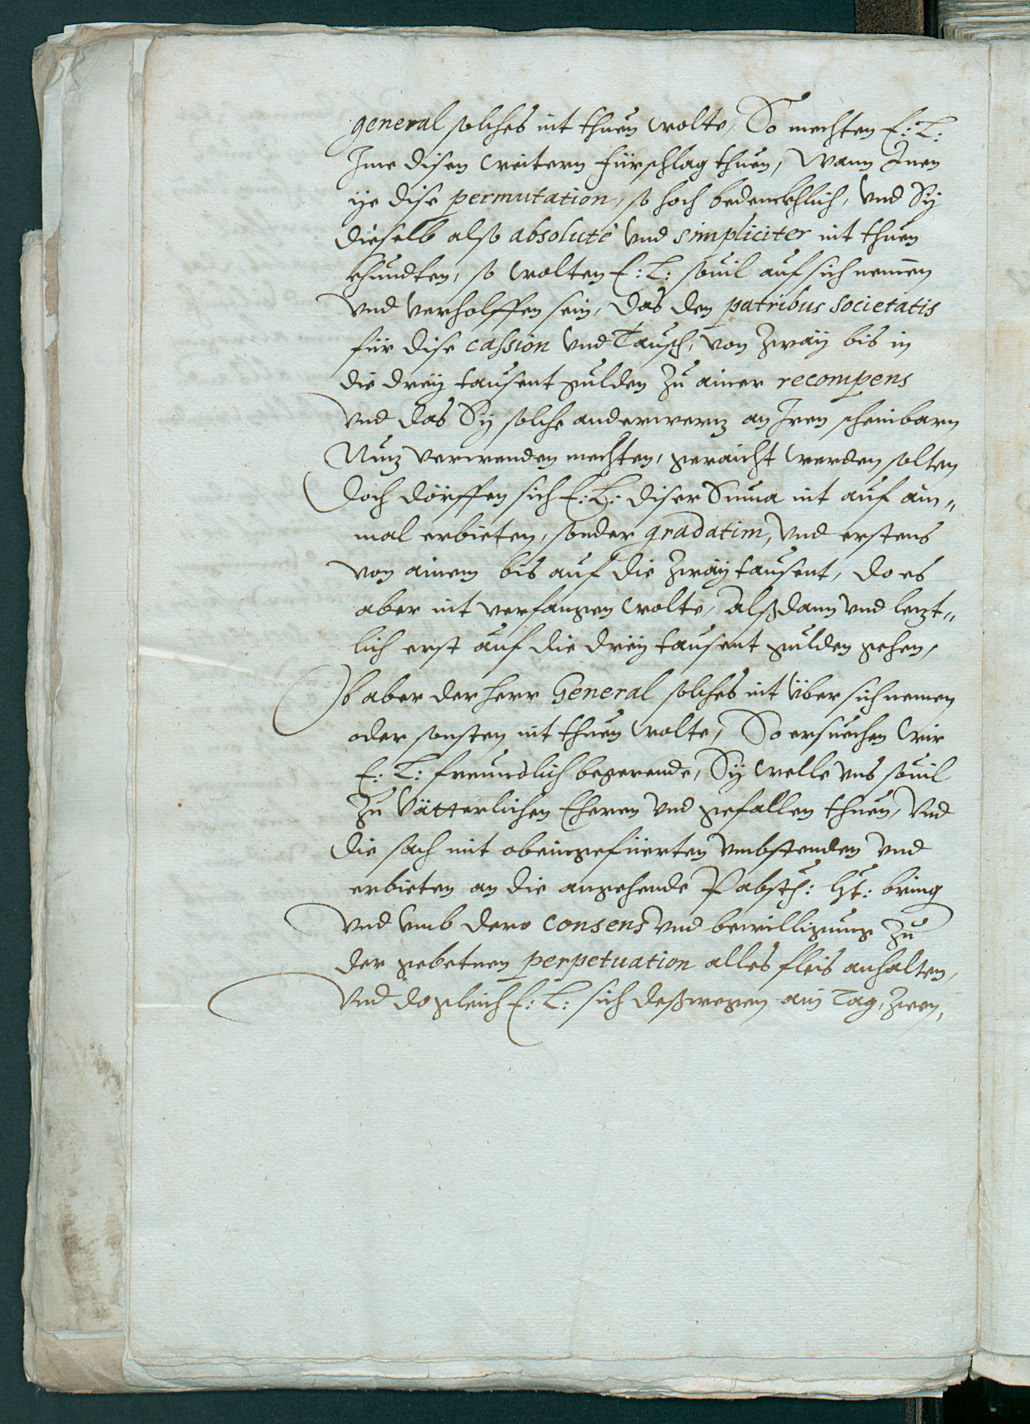 general solches nit thuen wolte, So mechten E: L:
Ime disen weitern fürschlag thuen, Wann Inen
ije dise permutation, so hoch bedenckhlich, vnd Sy
dieselb also absolutè vnd simpliciter nit thuen
khundten, so wolten E: L: souil auf sich nemen
vnd verholffen sein, das den patribus Societatis
für dise cassion vnd Tausch, von zwaÿ bis in
die dreÿ tausent gulden zu ainer recompens
vnd das Sÿ solche anderwerz an Iren scheinbarn
Nuz verwenden mechten, geraicht werden solten
Doch dörffen sich E: L: diser Suma nit auf ain„
mal erbieten, sonder gradatim, vnd erstens
von ainem bis auf die zwaÿ tausent, do es
aber nit verfangen wolte, Alßdann vnd lezt„
lich erst auf die dreÿ tausent gulden gehen,
Ob aber der herr General solches nit über sich nemen
oder sonsten nit thuen wolte, So ersuechen wir
E: L: freundlich begerende, Sÿ welle vns souil
zu Vätterlichen Eheren vnd gefallen thuen, Vnd
die sach mit obeingefüerten vmbstenden vnd
erbieten an die angehende Päbstl: Ht: bring
vnd vmb dero consens vnd bewilligung zu
der gebetnen perpetuation alles fleis anhalten,
Vnd do gleich E: L: sich deßwegen ain Tag, zwen,